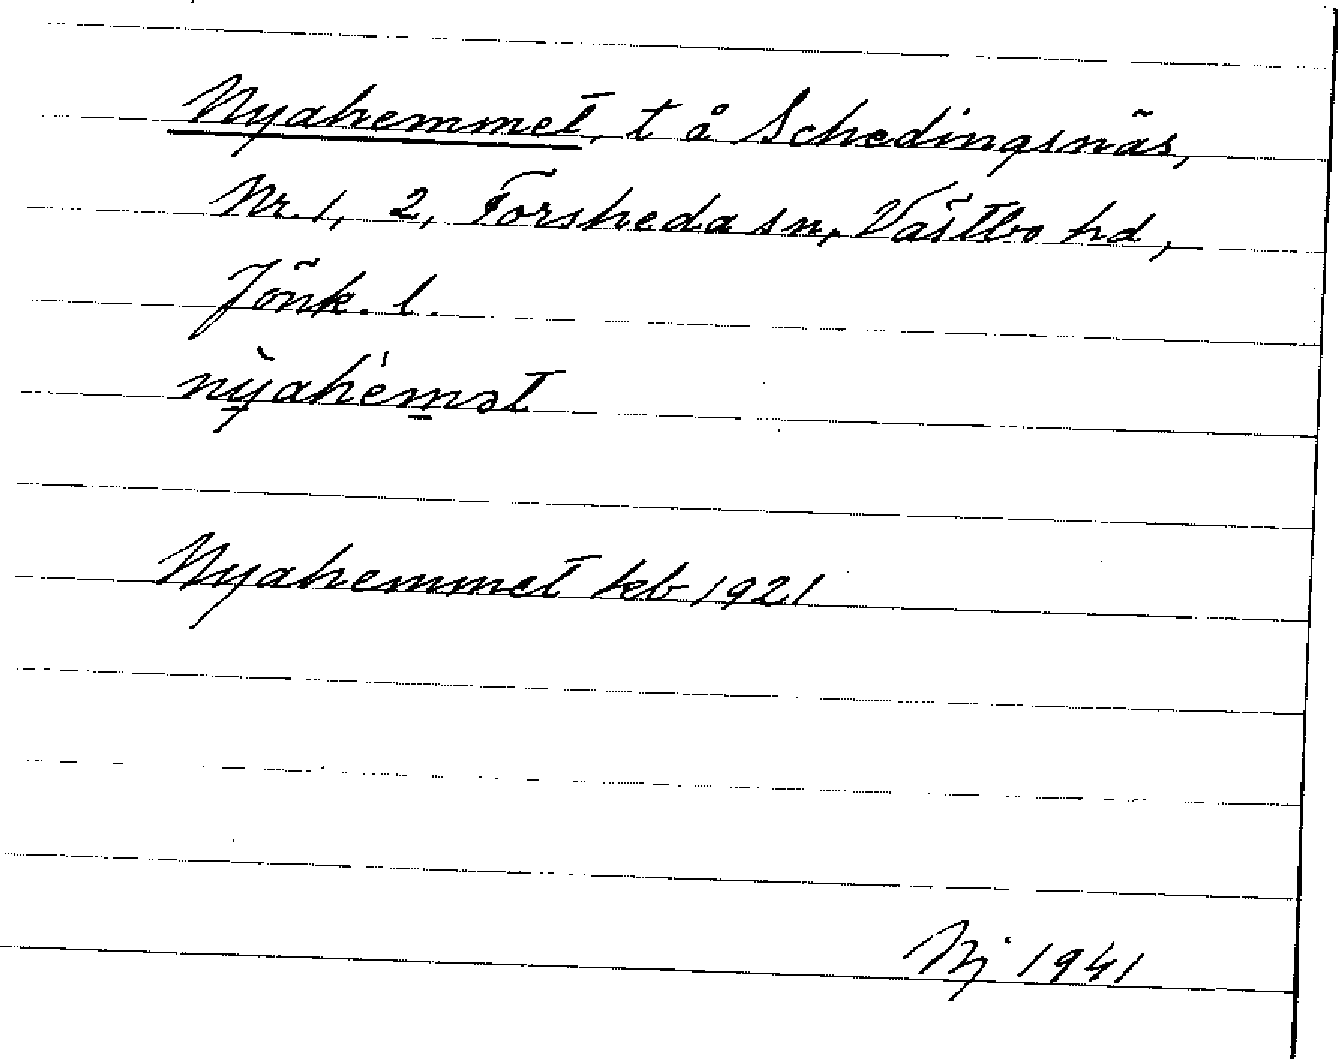 Nyahemmet, t å Schedingsnäs,
Nr. 1, 2, Forsheda sn, Västbo hd,
Jönk. l.
nỳahémət
Nyahemmet kb 1921
Nj 1941